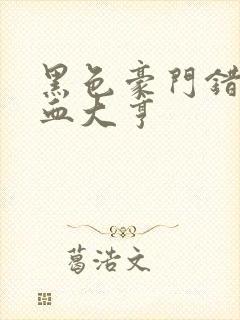 黑色豪門錯
血大亨
葛浩文